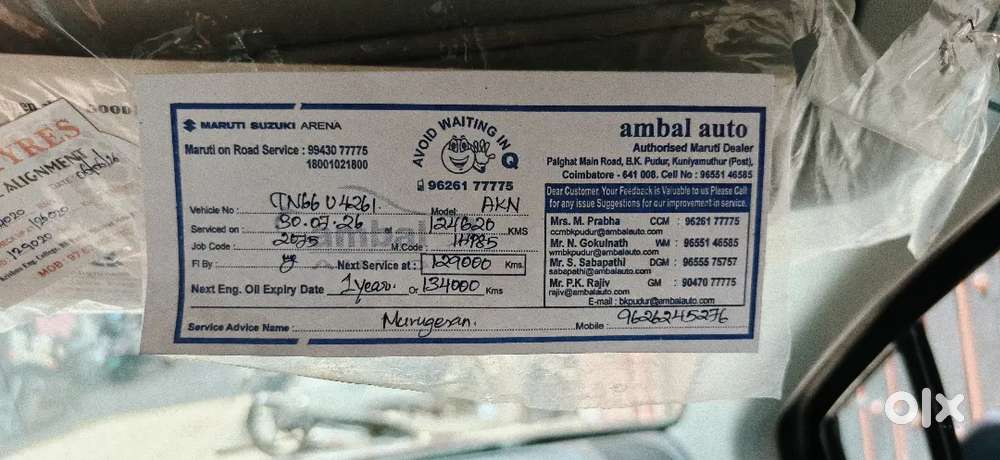 GOOD
TYRES
ALIGNMENT
129020
MARUTI SUZUKI ARENA
Maruti on Road Service : 99430 77775
18001021800
AVOID WAITING IN Q
96261 77775
ambal auto
Authorised Maruti Dealer
Palghat Main Road, B.K. Pudur, Kuniyamuthur (Post),
Coimbatore - 641 008. Cell No : 96551 46585
Dear Customer, Your Feedback is Valuable to us Please Call
for any issue Suggestions for our improvement in service.
Mrs. M. Prabha CCM : 96261 77775
ccmbkpudur@ambalauto.com
Mr. N. Gokulnath WM : 96551 46585
wmbkpudur@ambalauto.com
Mr. S. Sabapathi DGM : 96555 75757
sabapathi@ambalauto.com
Mr. P.K. Rajiv GM : 90470 77775
rajiv@ambalauto.com
E-mail : bkpudur@ambalauto.com
Vehicle No : TN66 U 4261 Model AKN
Serviced on : 30.07.26 124620 KMS
Job Code : 2075 M.Code : 
FI By : Next Service at : 129000 Kms
Next Eng. Oil Expiry Date 1 year. Or 134000 Kms
Service Advice Name : Murugesan. Mobile : 9626245276
olx